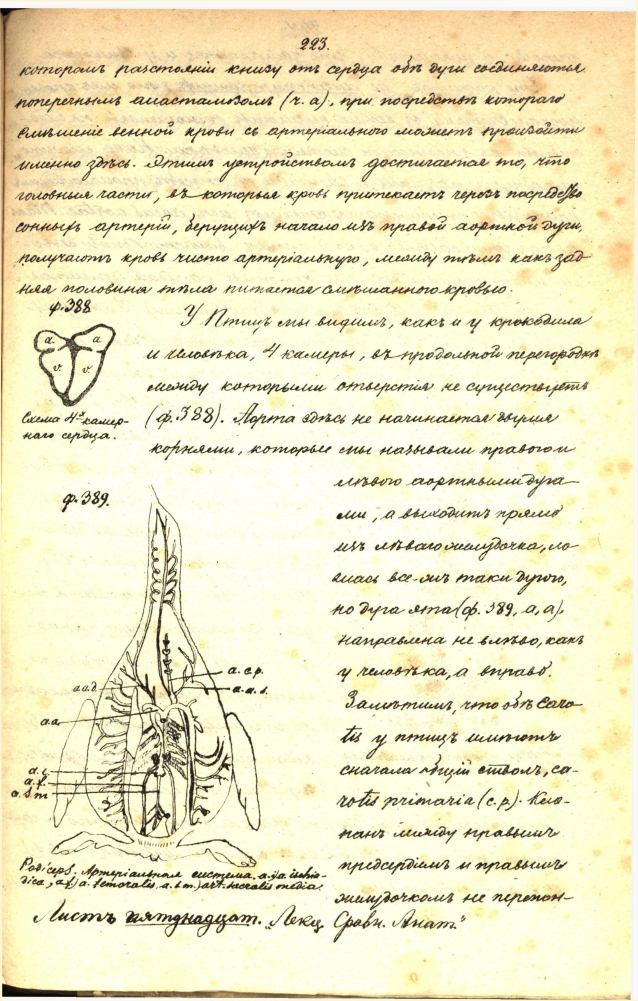 223.
которомъ разстояніи книзу отъ сердца обѣ дуги соединяются
поперечнымъ анастамозомъ (ч. а), при посредствѣ котораго
смѣшеніе венной крови съ артеріального можетъ произойти
именно здѣсь. Этимъ устройствомъ достигается то, что
головныя части, въ которыя кровь притекаетъ черезъ посредство
сонныхъ артерій, берущихъ начало изъ правой аортной дуги,
получаютъ кровь чисто артеріальную, между тѣмъ какъ зад-
няя половина тѣла питается смѣшанного кровью.
ф. 388
У Птицъ мы видимъ, какъ и у крокодила
и человѣка, 4 камеры, въ продольной перегородкѣ
между которыми отверстія не существуетъ
(ф. 388). Аорта здѣсь не начинается двумя
корнями, которые мы называли правого и
a. a
v. v
Схема 4х камер-
наго сердца.
лѣвого аортными дуга-
ми, а выходитъ прямо
изъ лѣваго желудочка, ло
жась все-же таки дугою,
но дуга эта (ф. 389, а, а),
направлена не влѣво, какъ
у человѣка, а вправо.
Замѣтимъ, что обѣ caro
tis у птицъ имѣютъ
сначала общій стволъ, ca-
rotis primaria (c. p). Кла-
панъ между правымъ
предсердіемъ и правымъ
желудочкомъ не перепон-
ф. 389.
a. c. p.
a. a. s.
a a. d
a a.
a. i.
a. f.
a. s. m
Podiceps. Артеріальная система. a. i) a. ischia-
dica, a. f) a. femoralis. a. s. m.) art. sacralis media.
Листъ пятднадцат. „Лекц. Сравн. Анат."